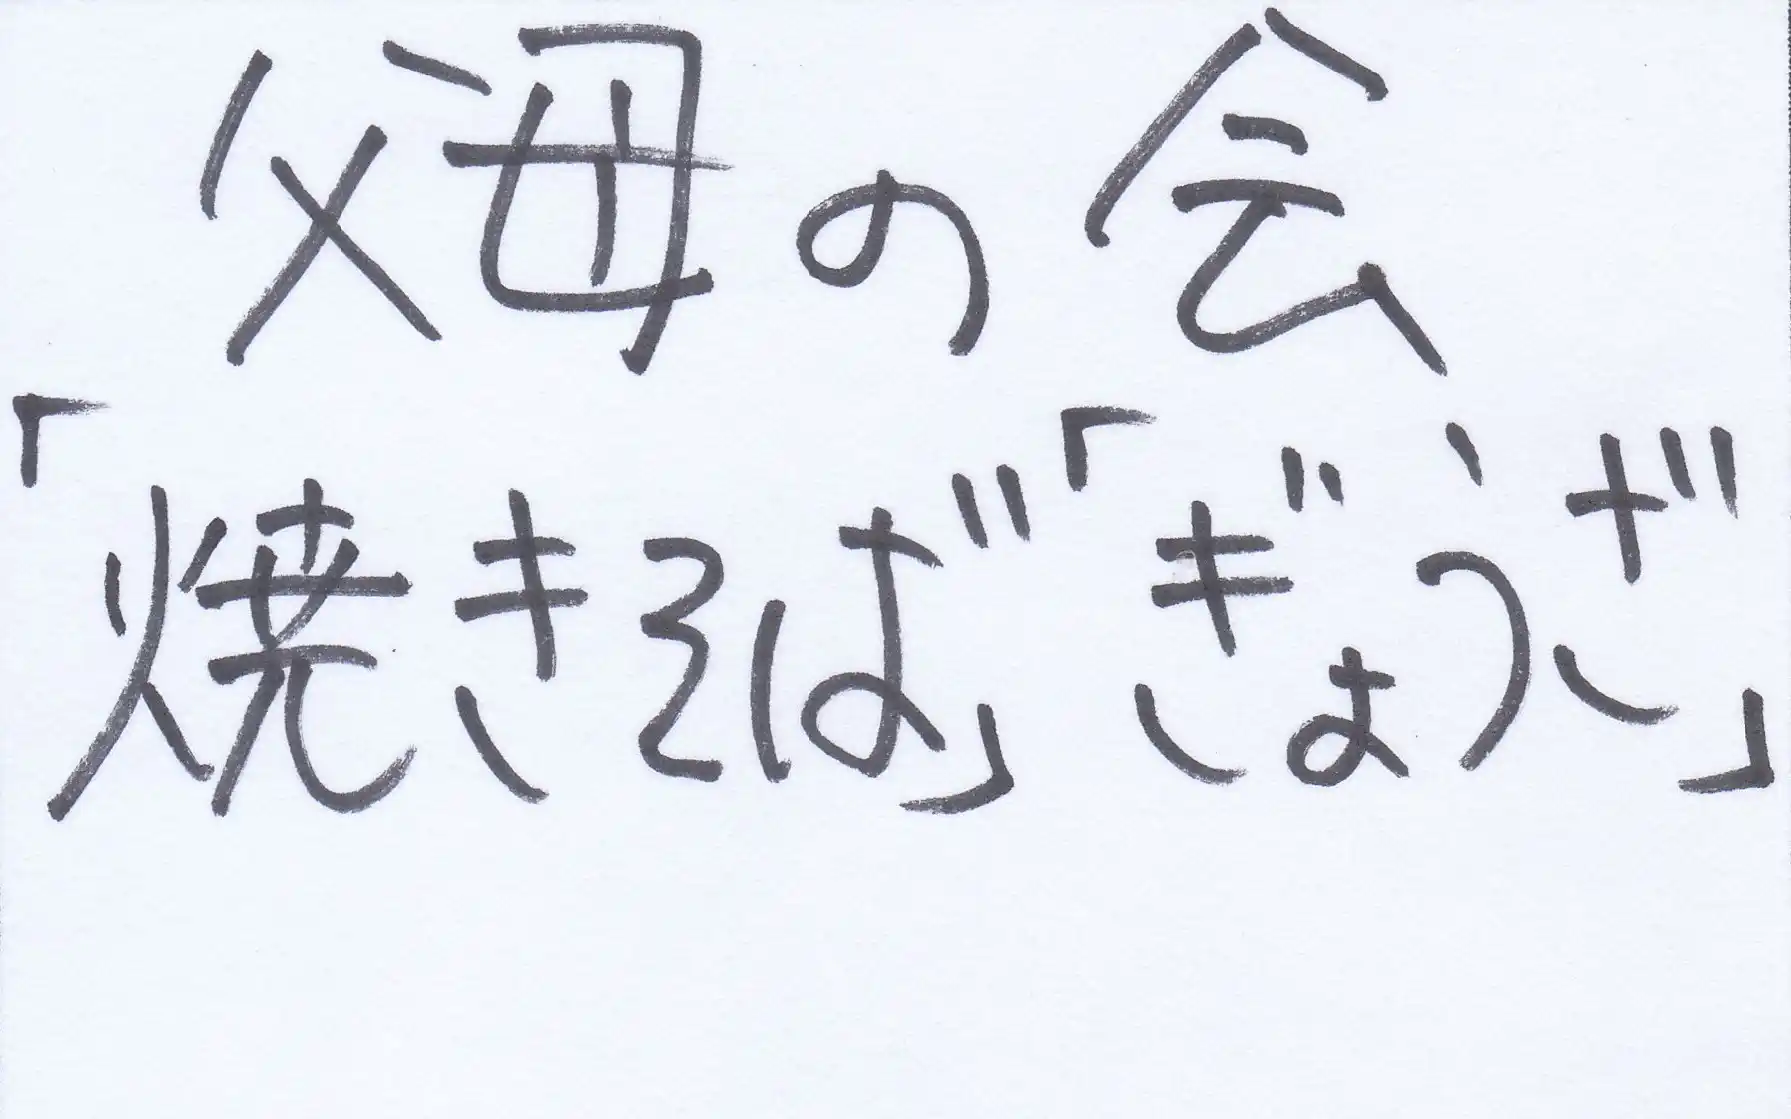 父母の会
「焼きそば」「ぎょうざ」